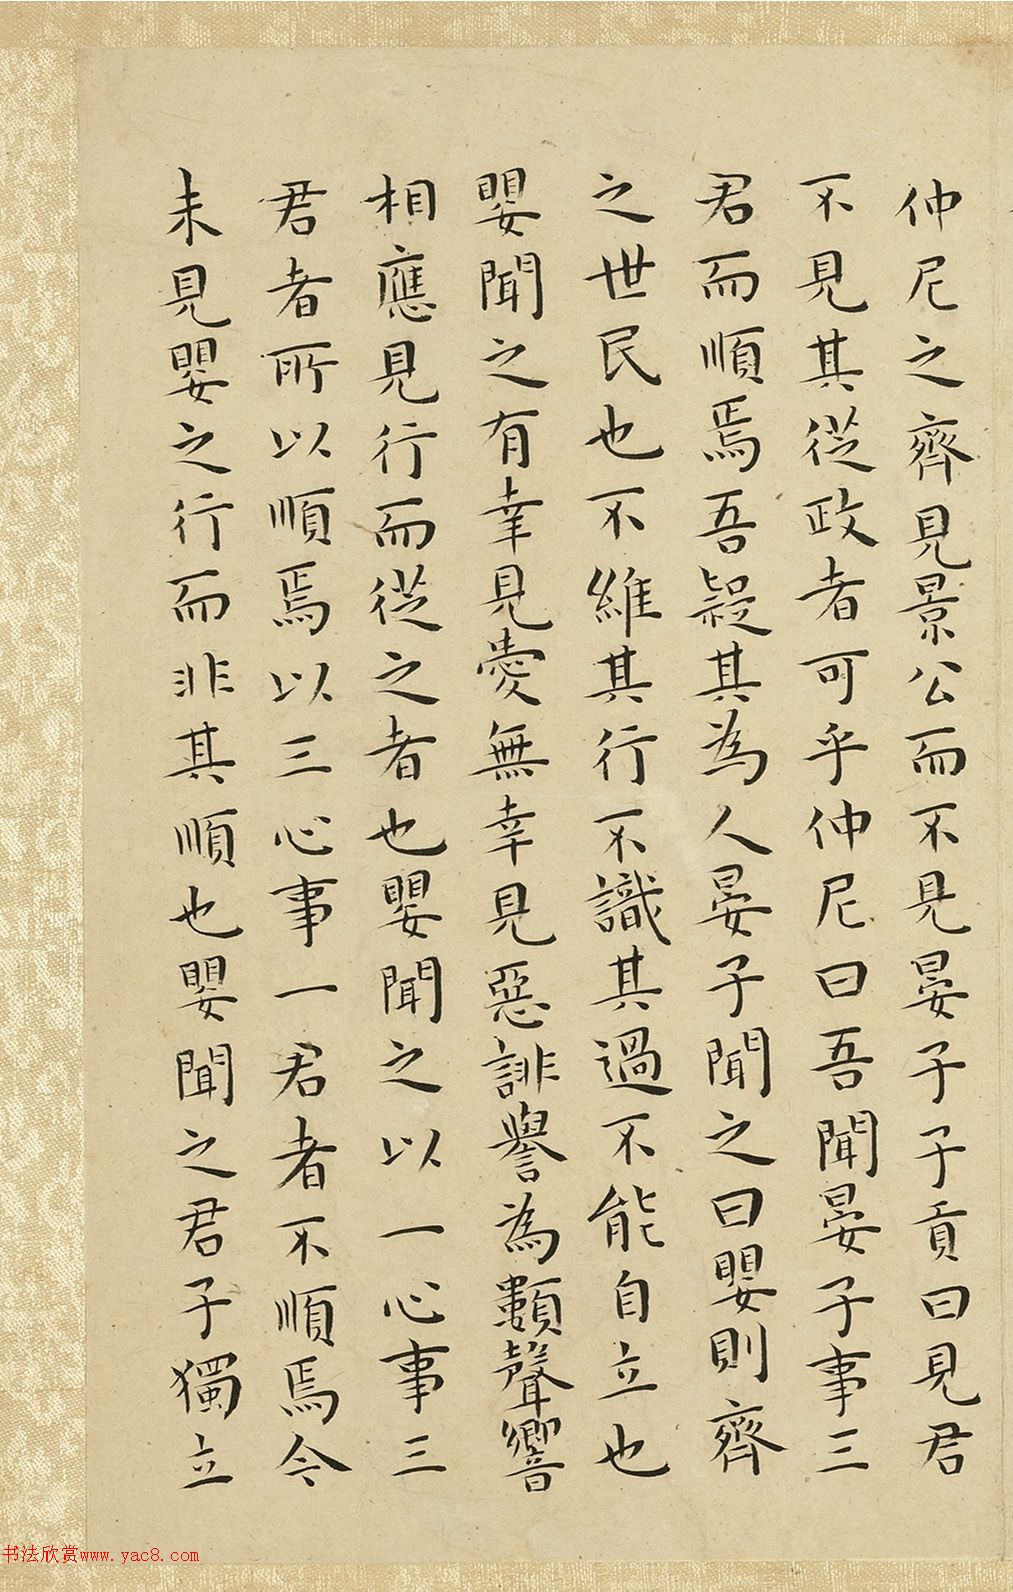 仲尼之齊見景公而不見晏子子貢曰見君
不見其從政者可乎仲尼曰吾聞晏子事三
君而順焉吾疑其為人晏子聞之曰嬰則齊
之世民也不維其行不識其過不能自立也
嬰聞之有幸見愛無幸見惡誹譽為類聲響
相應見行而從之者也嬰聞之以一心事三
君者所以順焉以三心事一君者不順焉今
未見嬰之行而非其順也嬰聞之君子獨立
书法欣赏www.yac8.com